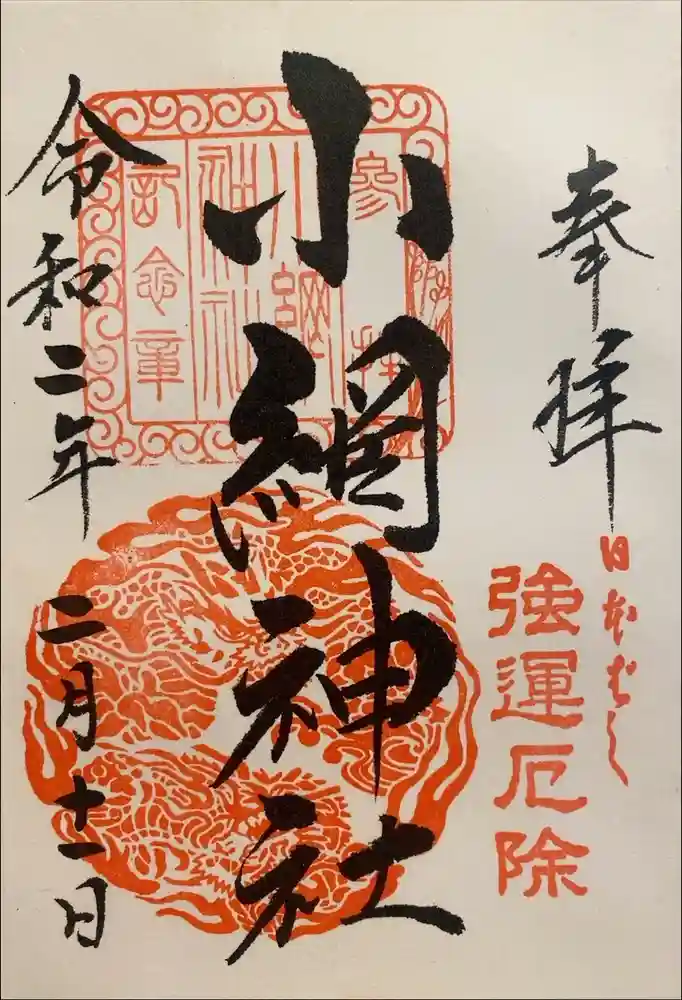 奉拝
日本ばし
強運厄除
参拝
小網神社
記念章
小網神社
令和二年
二月十一日